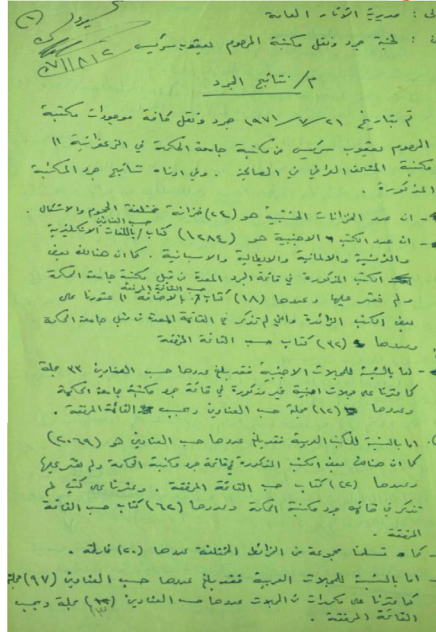 الى : مديرية الآثار العامة
لجنة جرد ونقل مكتبة المرحوم يعقوب سركيس
م/ نتائج الجرد
تم بتاريخ ٢١/٧/١٩٧١ جرد ونقل كافة موجودات مكتبة
المرحوم يعقوب سركيس من مكتبة جامعة الحكمة في الزعفرانية الى
مكتبة المتحف العراقي في الصالحية . وفي ادناه نتائج جرد المكتبة
المذكورة .
ان عدد الخزانات الخشبية هو (٢٤) خزانة مختلفة الحجوم والاشكال .
حسب العناوين
ان عدد الكتب الاجنبية هو (١٢٨٤) كتاب/ باللغات الانكليزية
والفرنسية والالمانية والايطالية والاسبانية . كما ان هنالك بعض
الكتب المذكورة في قائمة الجرد المعدة من قبل مكتبة جامعة الحكمة
حسب القائمة المرفقة
ولم نعثر عليها وعددها (١٨) كتاب بالاضافة الى عثورنا على
بعض الكتب الزائدة والتي لم تذكر في القائمة المعدة من قبل جامعة الحكمة
وعددها (٣٢) كتاب حسب القائمة المرفقة
اما بالنسبة للمجلات الاجنبية فقد بلغ عددها حسب العناوين ٣٣ مجلة
كما عثرنا على مجلات اجنبية غير مذكورة في قائمة جرد مكتبة جامعة الحكمة
وعددها (١٢) مجلة حسب العناوين وبحسب القائمة المرفقة .
اما بالنسبة للكتب العربية فقد بلغ عددها حسب العناوين هو (٢٠٦٩)
كما ان هناك بعض الكتب المذكورة في قائمة جرد مكتبة الحكمة ولم نعثر عليها
وعددها (٢٢) كتاب حسب القائمة المرفقة . وعثرنا على كتب لم
تذكر في قائمة جرد مكتبة الحكمة وعددها (٦٢) كتاب حسب القائمة
المرفقة .
كما تسلمنا مجموعة من الخرائط المختلفة عددها (٢٠) خارطة .
اما بالنسبة للمجلات العربية فقد بلغ عددها حسب العناوين (٩٧) مجلة
كما عثرنا على مكررات من المجلات عددها حسب العناوين مجلة وبحسب
القائمة المرفقة .